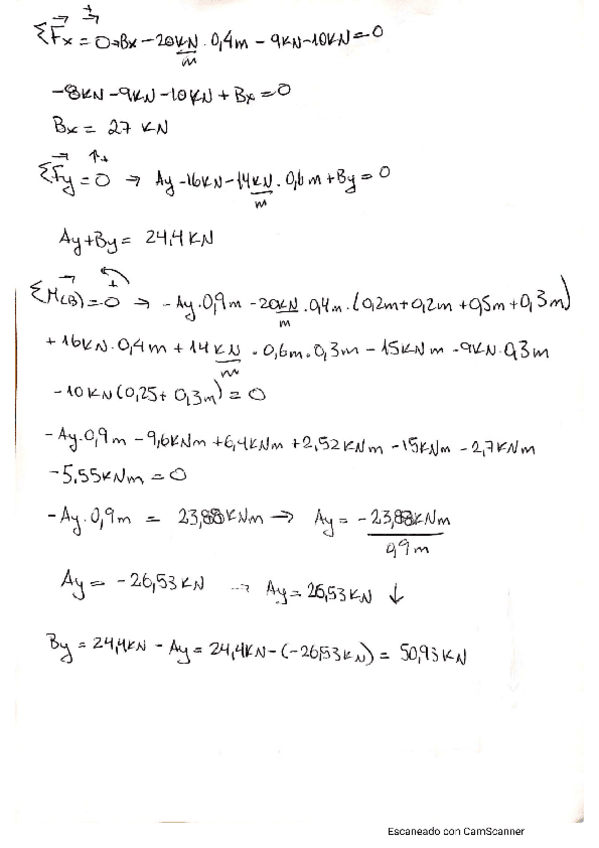 ΣFx = 0 → Bx - 20 kN/m · 0,4m - 9kN - 10kN = 0
-8kN - 9kN - 10kN + Bx = 0
Bx = 27 kN
ΣFy = 0 → Ay - 16kN - 14 kN/m · 0,6m + By = 0
Ay + By = 24,4 kN
ΣM(B) = 0 → -Ay · 0,9m - 20 kN/m · 0,4m · (0,2m + 0,2m + 0,5m + 0,3m)
+ 16kN · 0,4m + 14 kN/m · 0,6m · 0,3m - 15kNm - 9kN · 0,3m
- 10kN (0,25 + 0,3m) = 0
-Ay · 0,9m - 9,6kNm + 6,4kNm + 2,52kNm - 15kNm - 2,7kNm
- 5,55kNm = 0
-Ay · 0,9m = 23,88kNm → Ay = -23,88kNm / 0,9m
Ay = -26,53 kN → Ay = 26,53 kN ↓
By = 24,4kN - Ay = 24,4kN - (-26,53kN) = 50,93 kN
Escaneado con CamScanner